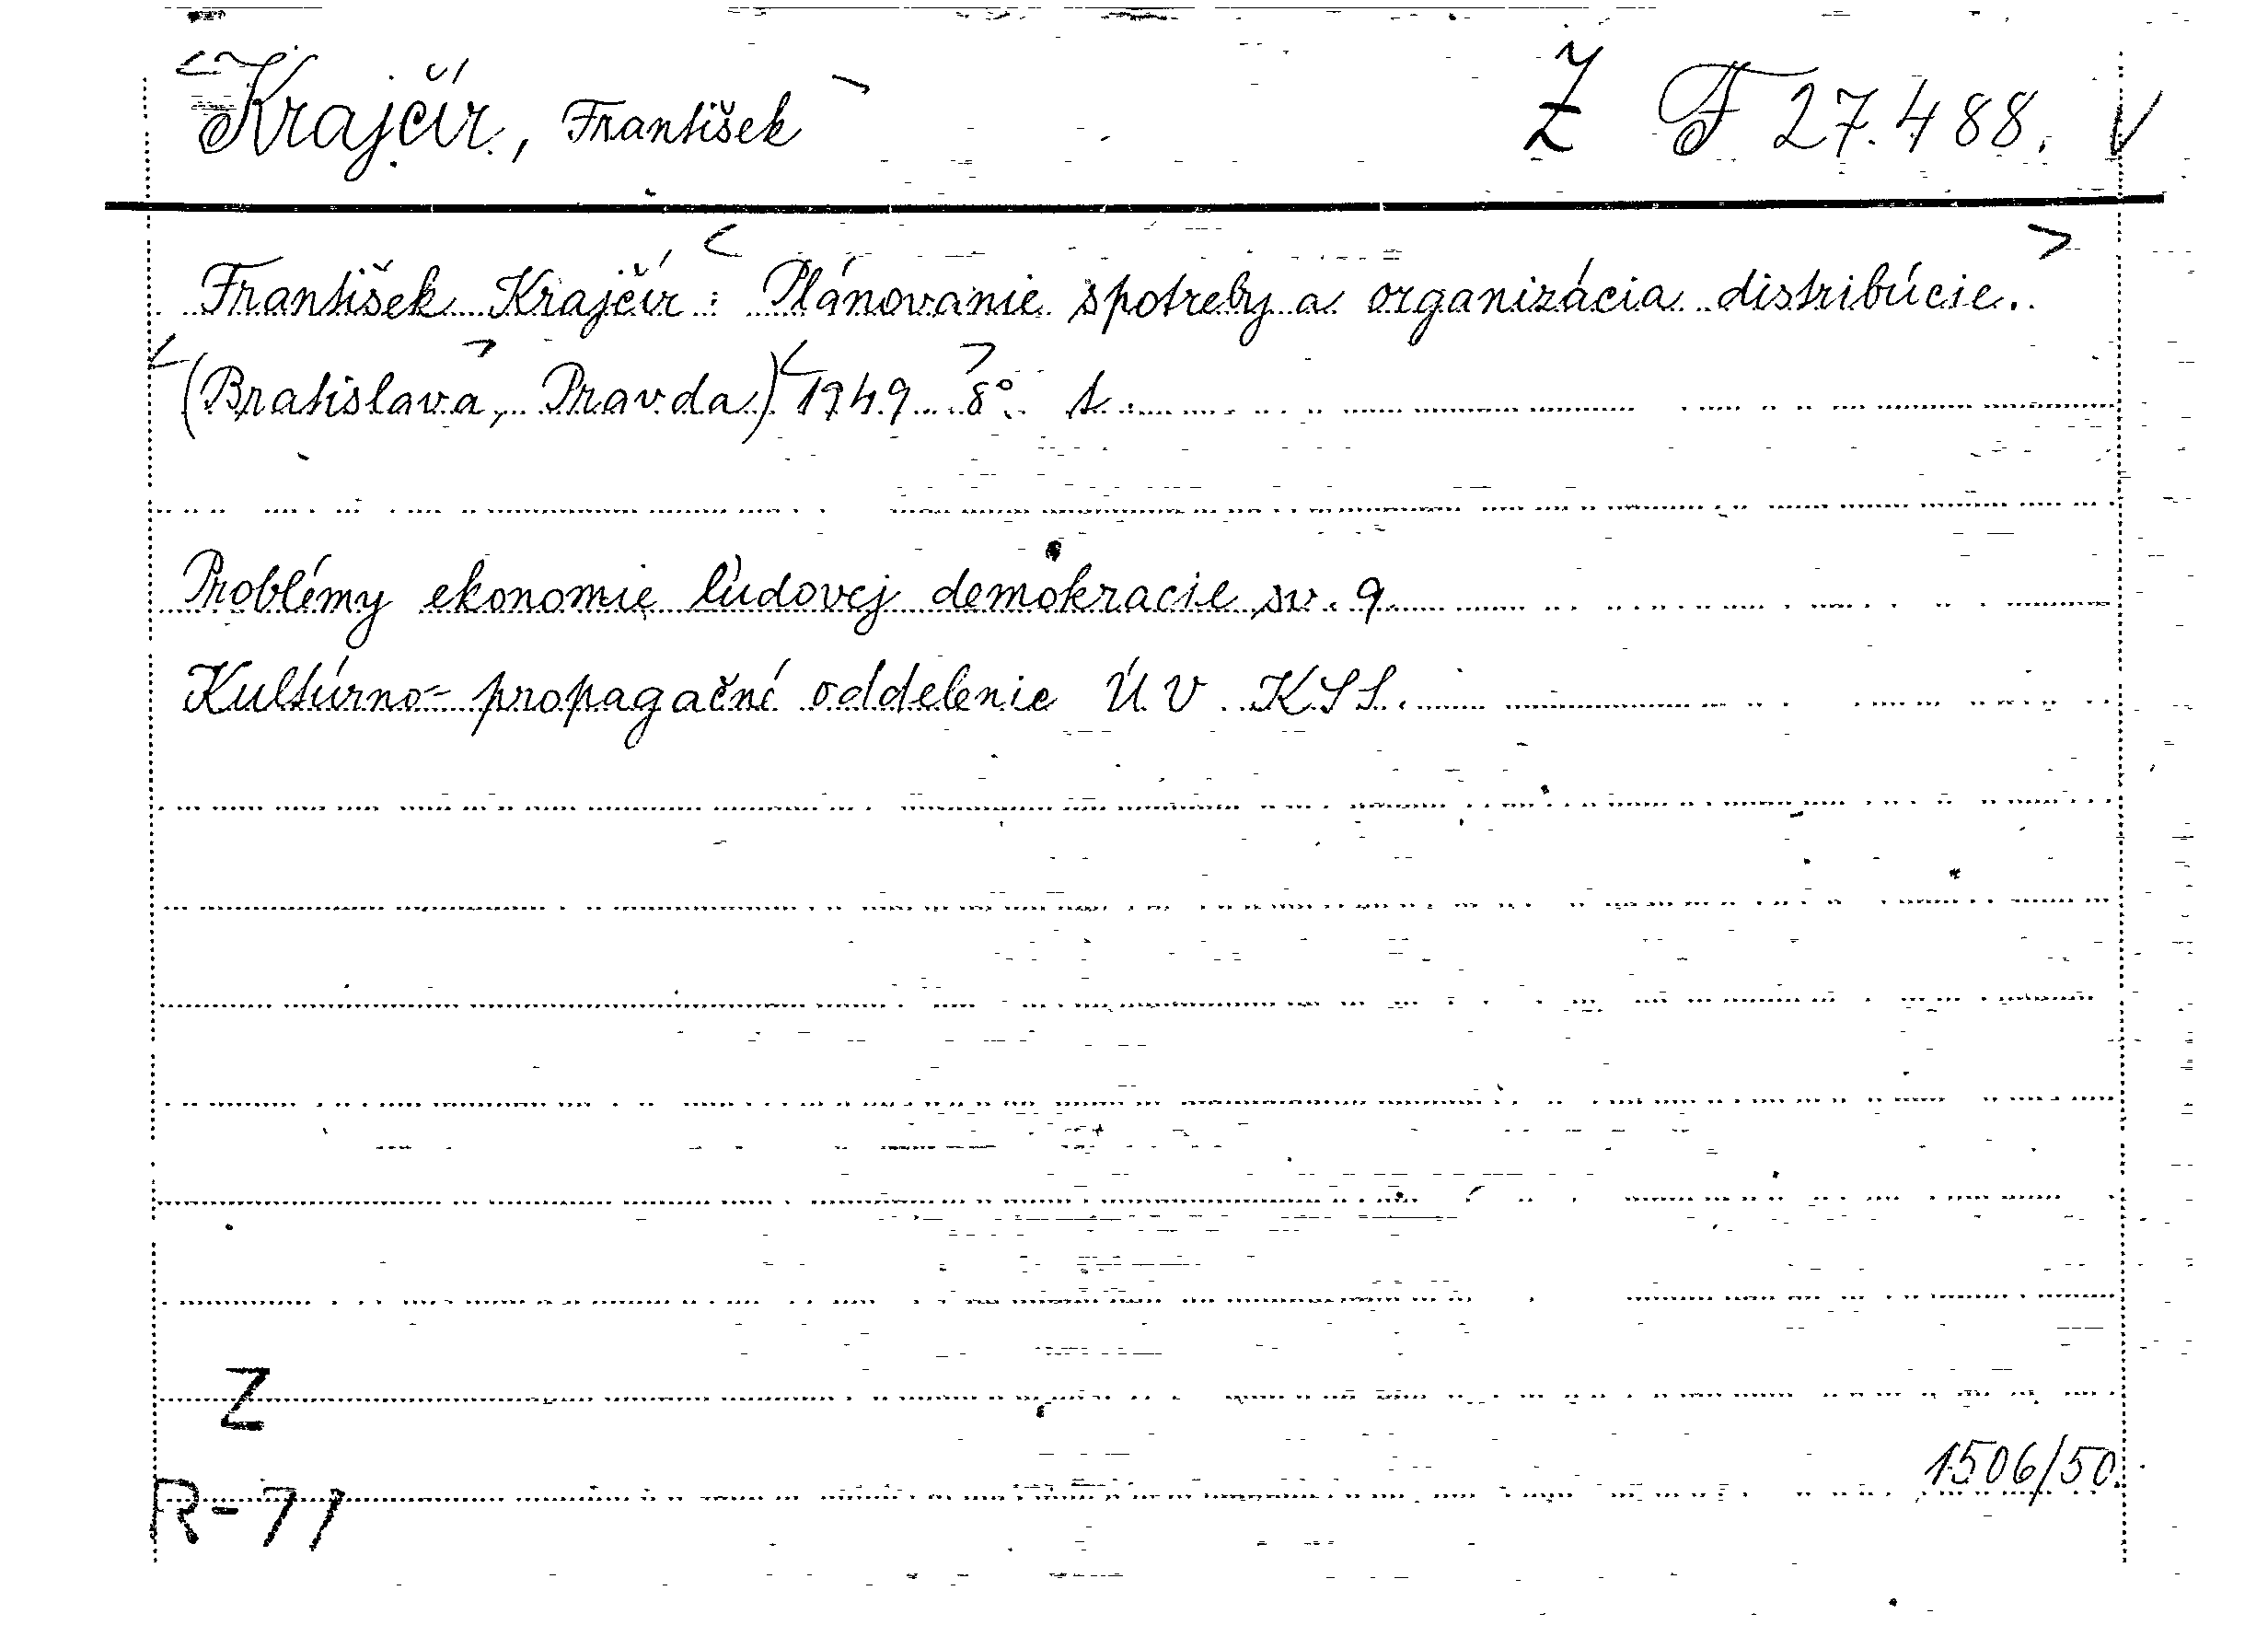 <Krajčír, František> Ž F 27.488. V
František Krajčír: <Plánovanie spotreby a organizácia distribúcie.>
<(Bratislava,> Pravda) <1949> 8°. s.
Problémy ekonomie ľudovej demokracie sv. 9
Kultúrno-propagační oddelenie ÚV KSS.
Z
1506/50.
R-71